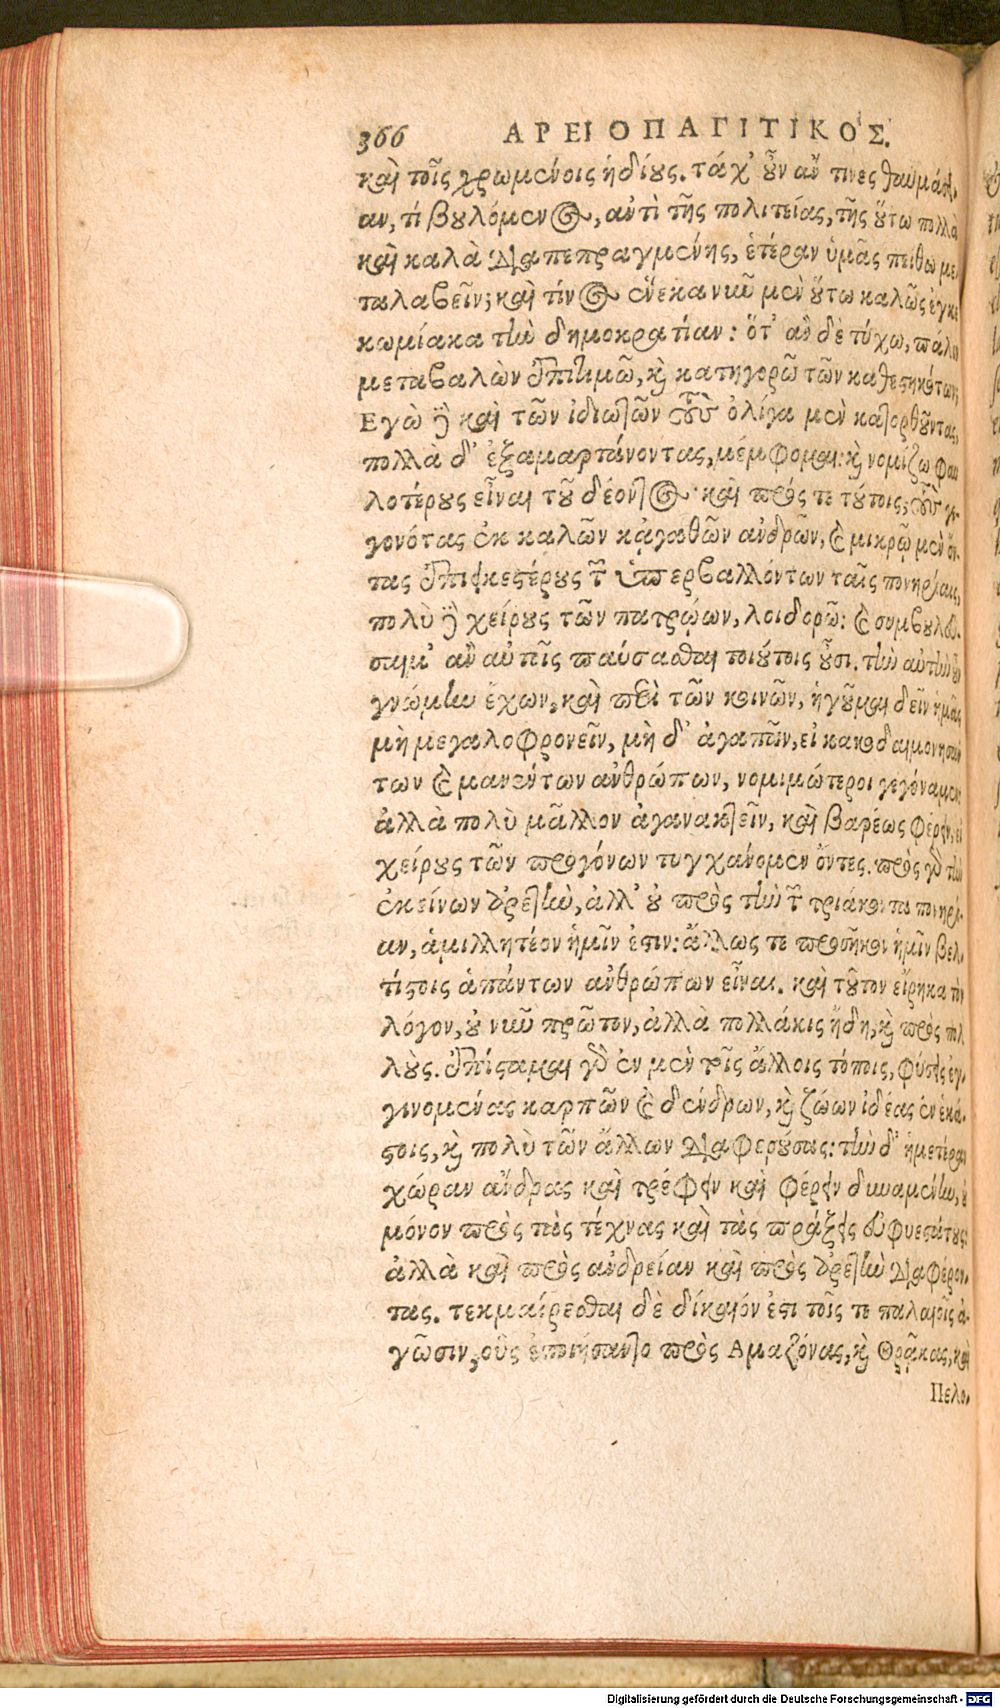 366 ΑΡΕΙΟΠΑΓΙΤΙΚΟΣ.
καὶ τοῖς χρωμένοις ἡδίους. τάχ' οὖν ἄν τινες θαυμάσει-
αν, τί βουλόμενος, ἀντὶ τῆς πολιτείας, τῆς οὕτω πολλὰ
καὶ καλὰ διαπεπραγμένης, ἑτέραν ὑμᾶς πείθω με-
ταλαβεῖν; καὶ τίνος ἕνεκα νῦν μὲν οὕτω καλῶς ἐγκε-
κωμίακα τὴν δημοκρατίαν: ὅτ' ἂν δὲ τύχω, πάλιν
μεταβαλὼν ἐπιτιμῶ, καὶ κατηγορῶ τῶν καθεστηκότων;
Εγὼ γὰρ καὶ τῶν ἰδιωτῶν τοὺς ὀλίγα μὲν κατορθοῦντας,
πολλὰ δ' ἐξαμαρτάνοντας, μέμφομαι: καὶ νομίζω φαυ
λοτέρους εἶναι τοῦ δέοντος· καὶ πρός τε τούτοις, τοὺς γε-
γονότας ἐκ καλῶν κἀγαθῶν ἀνδρῶν, καὶ μικρῷ μὲν ὄν-
τας ἐπιεικεστέρους τῶν ὑπερβαλλόντων ταῖς πονηρίαις,
πολὺ δὲ χείρους τῶν πατρώων, λοιδορῶ: καὶ συμβουλεύ-
σαιμ' ἂν αὐτοῖς παύσασθαι τοιούτοις οὖσι. τὴν αὐτὴν οὖν
γνώμην ἔχων, καὶ περὶ τῶν κοινῶν, ἡγοῦμαι δεῖν ἡμᾶς
μὴ μεγαλοφρονεῖν, μὴ δ' ἀγαπᾷν, εἰ κακοδαιμονησάν
των καὶ μανέντων ἀνθρώπων, νομιμώτεροι γεγόναμεν:
ἀλλὰ πολὺ μᾶλλον ἀγανακτεῖν, καὶ βαρέως φέρειν, εἰ
χείρους τῶν προγόνων τυγχάνομεν ὄντες. πρὸς γὰρ τὴν
ἐκείνων ἀρετὴν, ἀλλ' οὐ πρὸς τὴν τῶν τριάκοντα πονηρί-
αν, ἁμιλλητέον ἡμῖν ἐστιν: ἄλλως τε προσῆκον ἡμῖν βελ-
τίστοις ἁπάντων ἀνθρώπων εἶναι. καὶ τοῦτον εἴρηκα τὸν
λόγον, οὐ νῦν πρῶτον, ἀλλὰ πολλάκις ἤδη, καὶ πρὸς πολ
λούς. ἐπίσταμαι γὰρ ἐν μὲν τοῖς ἄλλοις τόποις, φύσεις ἐγ-
γινομένας καρπῶν καὶ δένδρων, καὶ ζώων ἰδέας ἐν ἑκά-
στοις, καὶ πολὺ τῶν ἄλλων διαφερούσας: τὴν δ' ἡμετέραν
χώραν ἄνδρας καὶ τρέφειν καὶ φέρειν δυναμένην, οὐ
μόνον πρὸς τὰς τέχνας καὶ τὰς πράξεις εὐφυεστάτους:
ἀλλὰ καὶ πρὸς ἀνδρείαν καὶ πρὸς ἀρετὴν διαφέρον-
τας. τεκμαίρεσθαι δὲ δίκαιόν ἐστι τοῖς τε παλαιοῖς ἀ-
γῶσιν, οὓς ἐποιήσαντο πρὸς Αμαζόνας, καὶ Θρᾷκας, καὶ
Πελο-
Digitalisierung gefördert durch die Deutsche Forschungsgemeinschaft - DFG